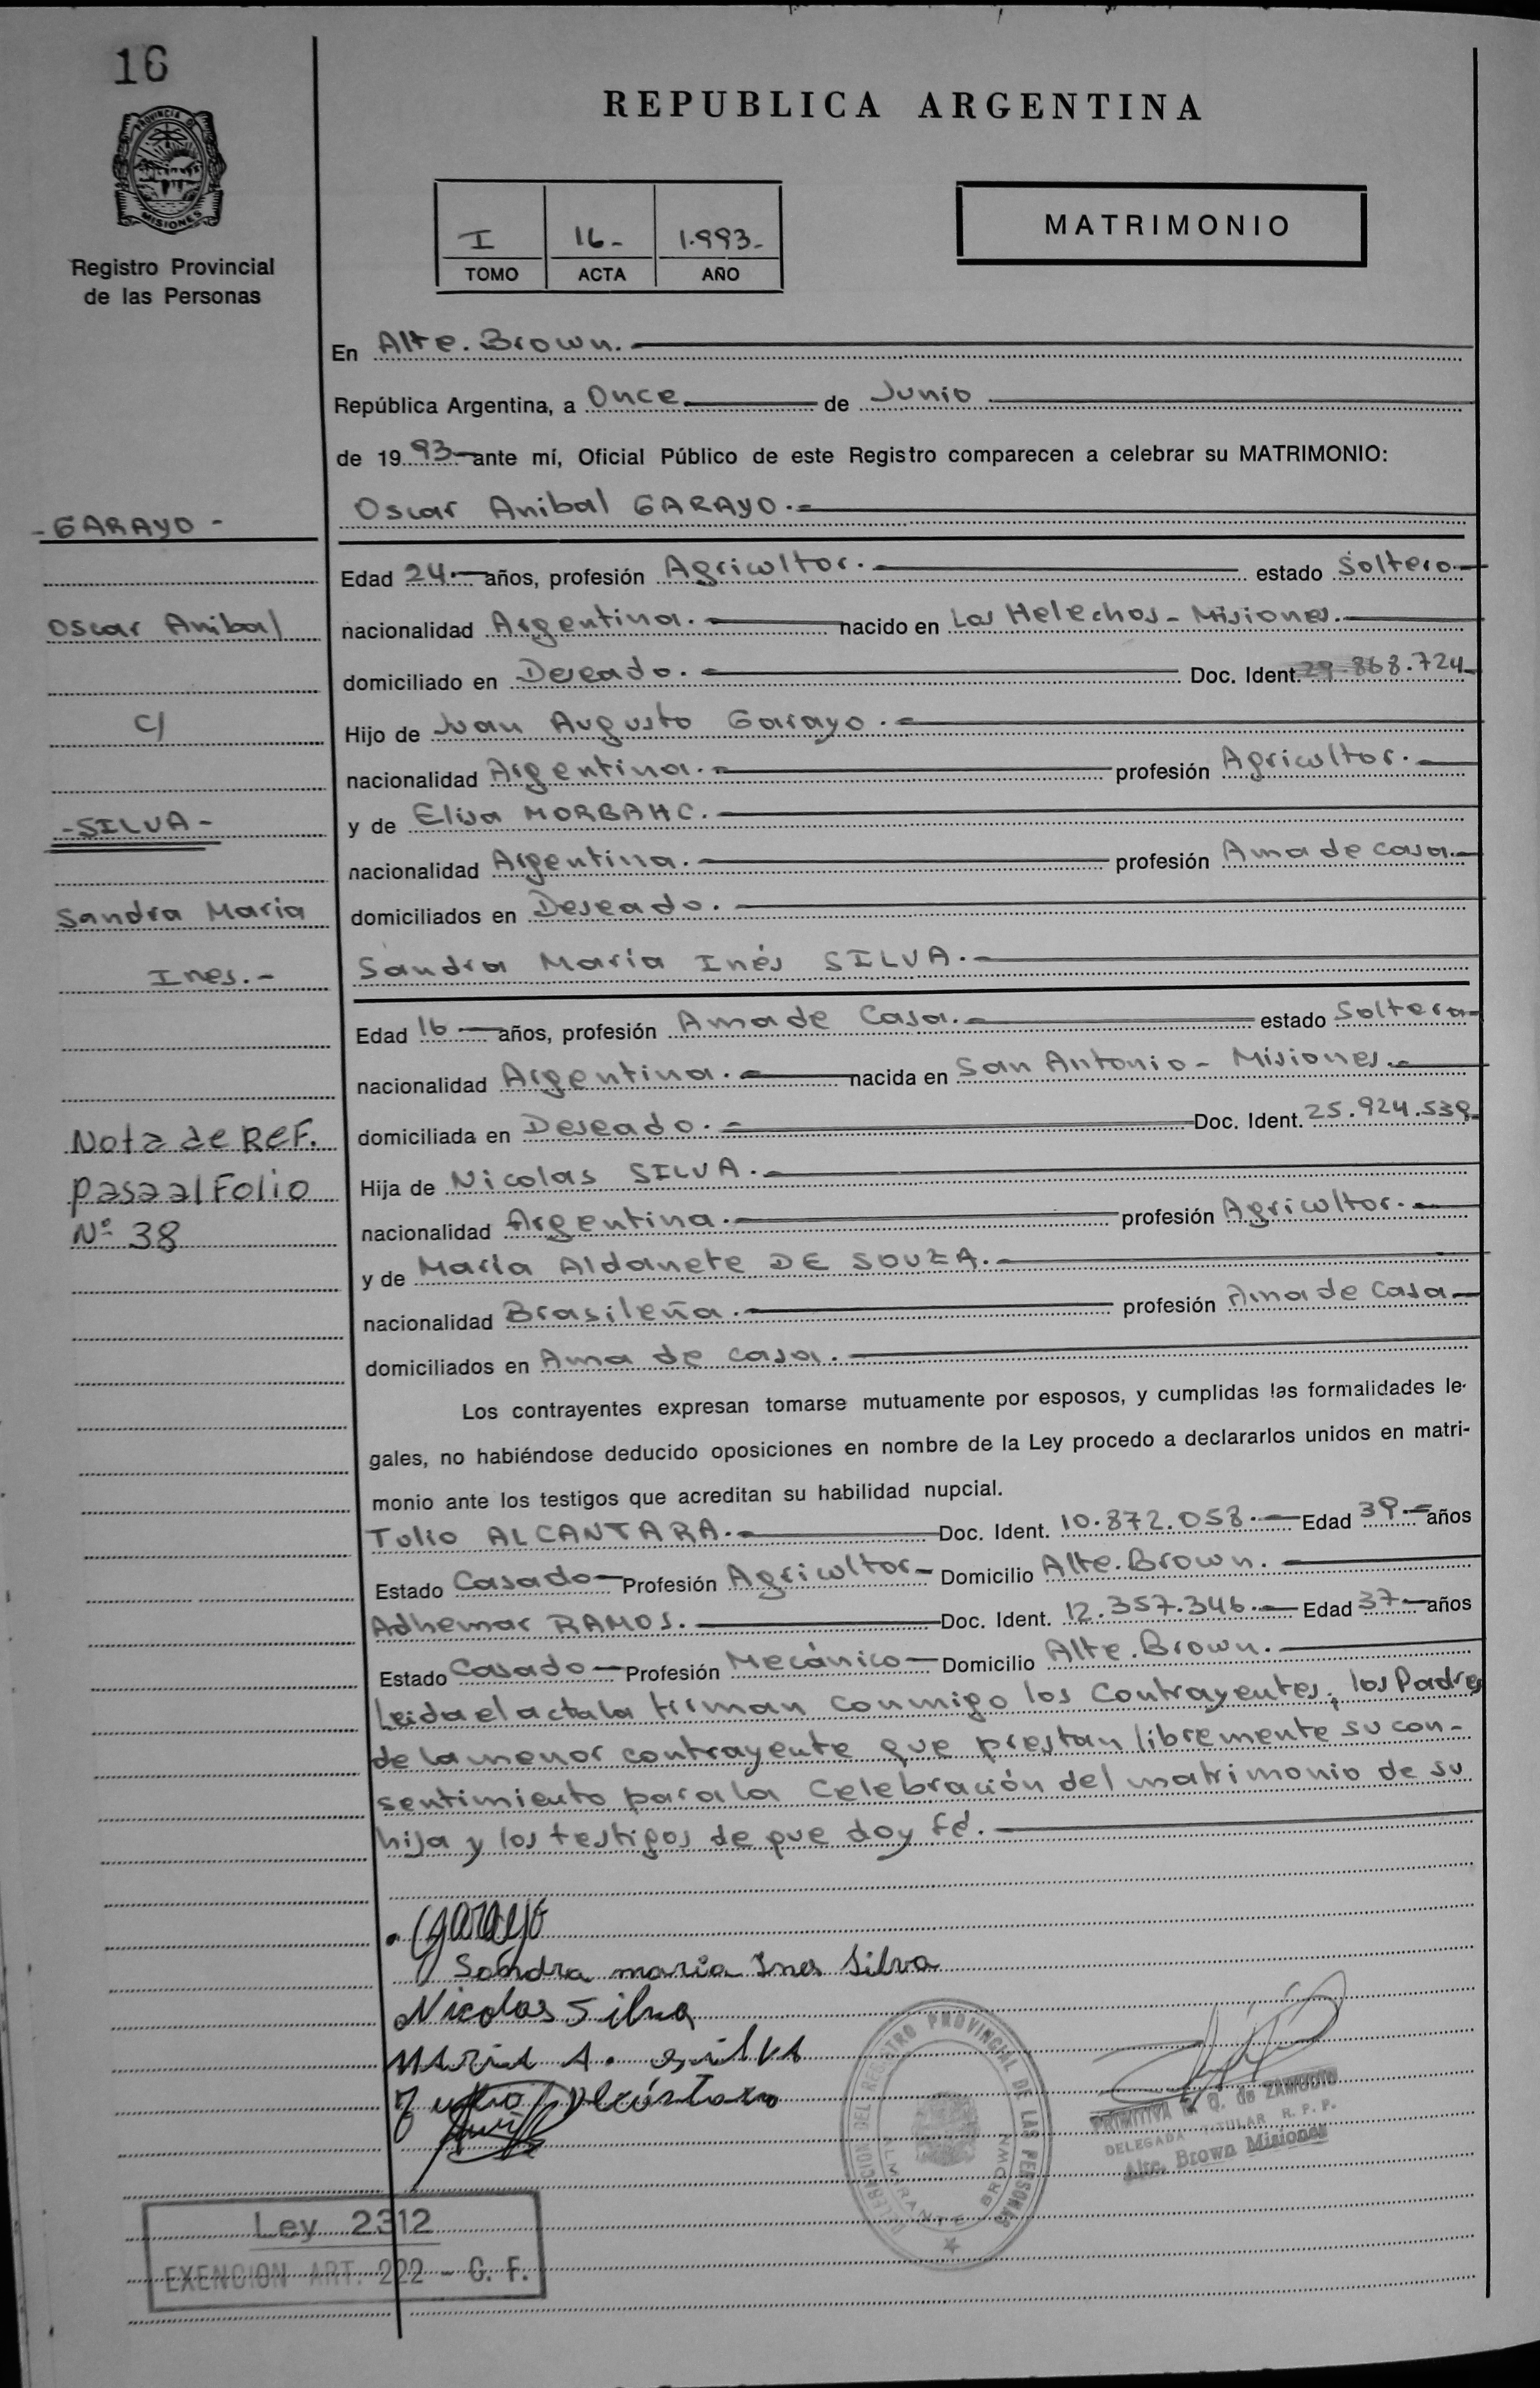 16
PROVINCIA DE
MISIONES
Registro Provincial
de las Personas
REPUBLICA ARGENTINA
I 16- 1.993-
TOMO ACTA AÑO
MATRIMONIO
En Alte. Brown.
República Argentina, a Once de Junio
de 1993 ante mí, Oficial Público de este Registro comparecen a celebrar su MATRIMONIO:
Oscar Anibal GARAYO.
Edad 24. años, profesión Agricultor. estado Soltero
nacionalidad Argentina. nacido en Los Helechos - Misiones.
domiciliado en Deseado. Doc. Ident. 29.868.724
Hijo de Juan Augusto Garayo.
nacionalidad Argentina. profesión Agricultor.
y de Elisa MORBAHC.
nacionalidad Argentina. profesión Ama de casa.
domiciliados en Deseado.
Sandra María Inés SILVA.
Edad 16 años, profesión Ama de Casa. estado Soltera
nacionalidad Argentina. nacida en San Antonio - Misiones.
domiciliada en Deseado. Doc. Ident. 25.924.539
Hija de Nicolas SILVA.
nacionalidad Argentina. profesión Agricultor.
y de María Aldanete DE SOUZA.
nacionalidad Brasileña. profesión Ama de Casa
domiciliados en Ama de casa.
Los contrayentes expresan tomarse mutuamente por esposos, y cumplidas las formalidades le-
gales, no habiéndose deducido oposiciones en nombre de la Ley procedo a declararlos unidos en matri-
monio ante los testigos que acreditan su habilidad nupcial.
Tulio ALCANTARA. Doc. Ident. 10.872.058. Edad 39. años
Estado Casado Profesión Agricultor Domicilio Alte. Brown.
Adhemar RAMOS. Doc. Ident. 12.357.346. Edad 37 años
Estado Casado Profesión Mecánico Domicilio Alte. Brown.
Leida el acta la firman conmigo los Contrayentes, los Padres
de la menor contrayente que prestan libremente su con-
sentimiento para la Celebración del matrimonio de su
hija y los testigos de que doy fé.
- GARAYO -
Oscar Anibal
c/
- SILVA -
Sandra Maria
Ines.-
Nota de REF.
pasa al Folio
Nº 38
Garayo
Sandra maria Ines Silva
Nicolas Silva
MARIA A. SILVA
DELEGACION DEL REGISTRO PROVINCIAL DE LAS PERSONAS
ALMIRANTE BROWN
PRIMITIVA Q. de ZAMUDIO
DELEGADA TITULAR R. P. P.
Alte. Brown Misiones
Ley 2312
EXENCION ART. 222 - C. F.